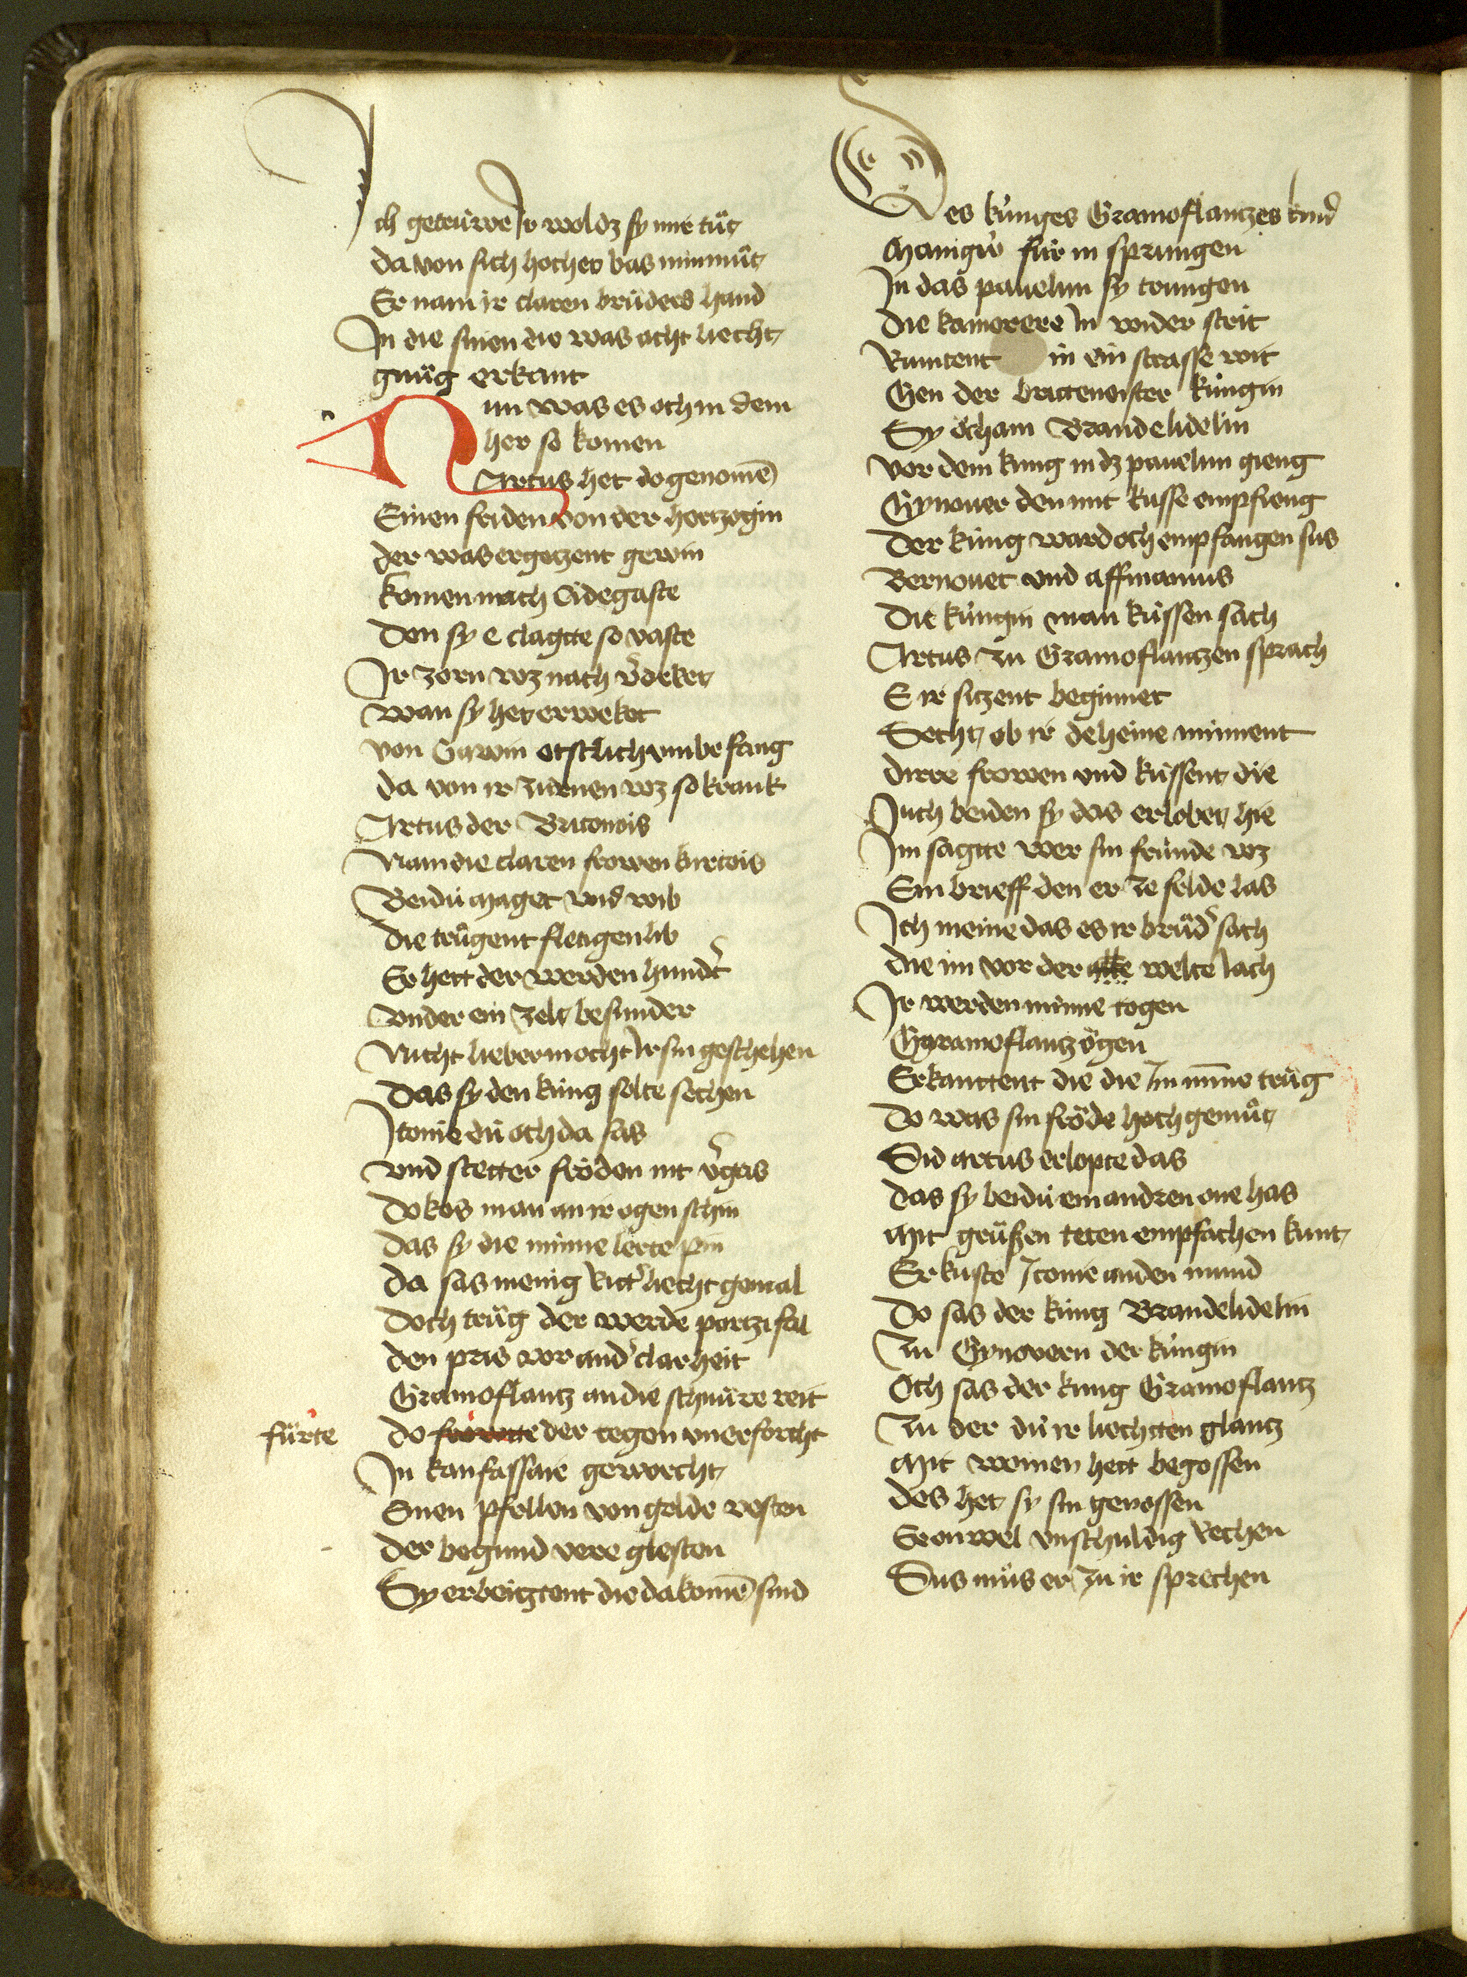 Ich getruwe Ir wol dz sy mir tuͦt
da von sich hocher bas min muͦt
Er nam ir claren bruͦders hand
In die sinen die was acht liecht
gnuͦg erkant
Nun was es och in dem
her so komen
Artus het do genomē
Einen friden von der hertzogin
der was ergetzent gewin
komen nach Cidegaste
Den sy e clagtte so vaste
Ir zorn wz nach v̉deket
wan sy het erweket
von Gawin etstlich vmbefang
da von ir zurnen wz so krank
Artus der Britonois
Nam die claren frowen kurtois
Beidu maget vnd wib
die truͦgent fletigen lib
Er hett der werden hundt̉
vnder ein zelt besunder
Nicht lieber mocht Ir sin geschehen
Das sy den kung solte sechen
Itonie du och da sas
vnd stetter froͤden nit v̉gas
Do kos man an ir ogen schin
das sy die minne lerte pin
da sas menig Ritt̉ liecht gemal
Doch truͦg der werde partzifal
den pris vor and̉ clarheit
Gramoflantz an die schnuͤre reit
fuͦrte
do froͤwtte der tegen vnerforcht
In kanfassare geworcht
Einen pfellen von golde vesten
der begund vere glesten
Sy erbeigtent die da komē sind
Des kuͤnges Gramoflantzes kind
Manigu̍ fuͤr in sprungen
In das pauelun sy trungen
die kamerere In wider strit
Rumtent in ein strasse wit
Gen der brittenoiser kuͤngin
Sy oͤcham Brandelidelin
vor dem kung in dz pauelun gieng
Gynouer den mit kusse empfieng
Der kuͤng ward och empfangen sus
Bernouet vnd affinamus
Die kuͤngin man kuͤssen sach
Artus zu Gramoflantzen sprach
E ir sitzent beginnet
Secht ob ir deheine minnent
dirre frowen vnd kussent die
Iuch beiden sy das erlobet hie
Im sagtte wer sin fruͤnde wz
Ein brieff den er ze felde las
Ich meine das es ir bruͦd̉ sach
die im vor der alle welte lach
Ir werden minne togen
Ggramoflantz oͤgen
Erkanttent die die Im mīne truͦg
Do was sin froͤde hoch gemuͦt
Sid artus erlopte das
das sy beidu ein andren one has
Mit gruͤßen teten empfachen kunt
Er kuste Itonie an den mund
Do sas der kuͤng Brandelidelin
Zu Gynovern der kuͤngin
Och sas der kung Gramoflantz
Zu der du̍ ir liechten glantz
Mit weinen hett begossen
des het sy sin genossen
Er enwel vnschuldig rechen
Sus muͦs er zu ir sprechen